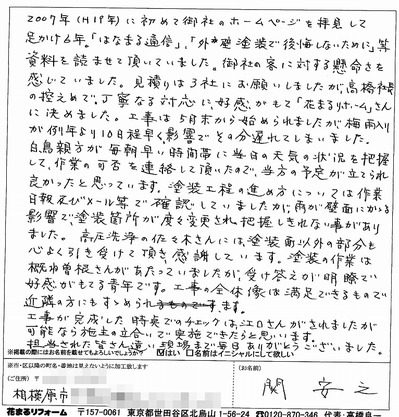 2007年(H19年)に初めて御社のホームページを拝見して
足かけ6年。「はなまる通信」、「外壁塗装で後悔しないために」等
資料を読ませて頂いていました。御社の客に対する懸命さを
感じていました。見積りは3社にお願いしましたが高橋社長
の控えめで、丁寧なる対応に、好感がもて「花まるリホーム」さん
に決めました。工事は5月末から始められましたが梅雨入り
が例年より10日程早く影響でその分遅れてしまいました。
白鳥親方が毎朝早い時間帯に当日の天気の状況を把握
して、作業の可否を連絡して頂いたので、当方の予定が立てられ
良かったと思っています。塗装工程の進め方については作業
日報及びメール等で確認していましたが、雨が壁面にかかる
影響で、塗装箇所が度々変更され把握しきれない事があり
ました。高圧洗浄の佐々木さんには、塗装面以外の部分も
心よく引き受けて頂き感謝しています。塗装の作業は
概ね曽根さんがあたっていましたが、受け答えが明瞭で
好感がもてる青年です。工事の全体像は満足できるもので
近隣の方にもすゝめられます。
工事が完成した時点でのチェックは、江口さんがされましたが
可能なら施主の立合いで実施できたらと思います。
担当された皆さん遠い現場まで毎日ありがとうございました。
※掲載の際にはお名前を載せてもよろしいでしょうか? ☑はい □名前はイニシャルにして欲しい
※市・区以降の町名・番地は見えないように加工致します
(ご住所) 〒
(お名前)
相模原市
関 安之
花まるリフォーム 〒157-0061 東京都世田谷区北烏山1-56-24 ☎0120-870-346 代表:高橋良一